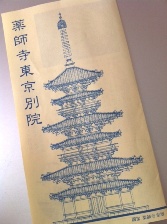 薬師寺東京別院